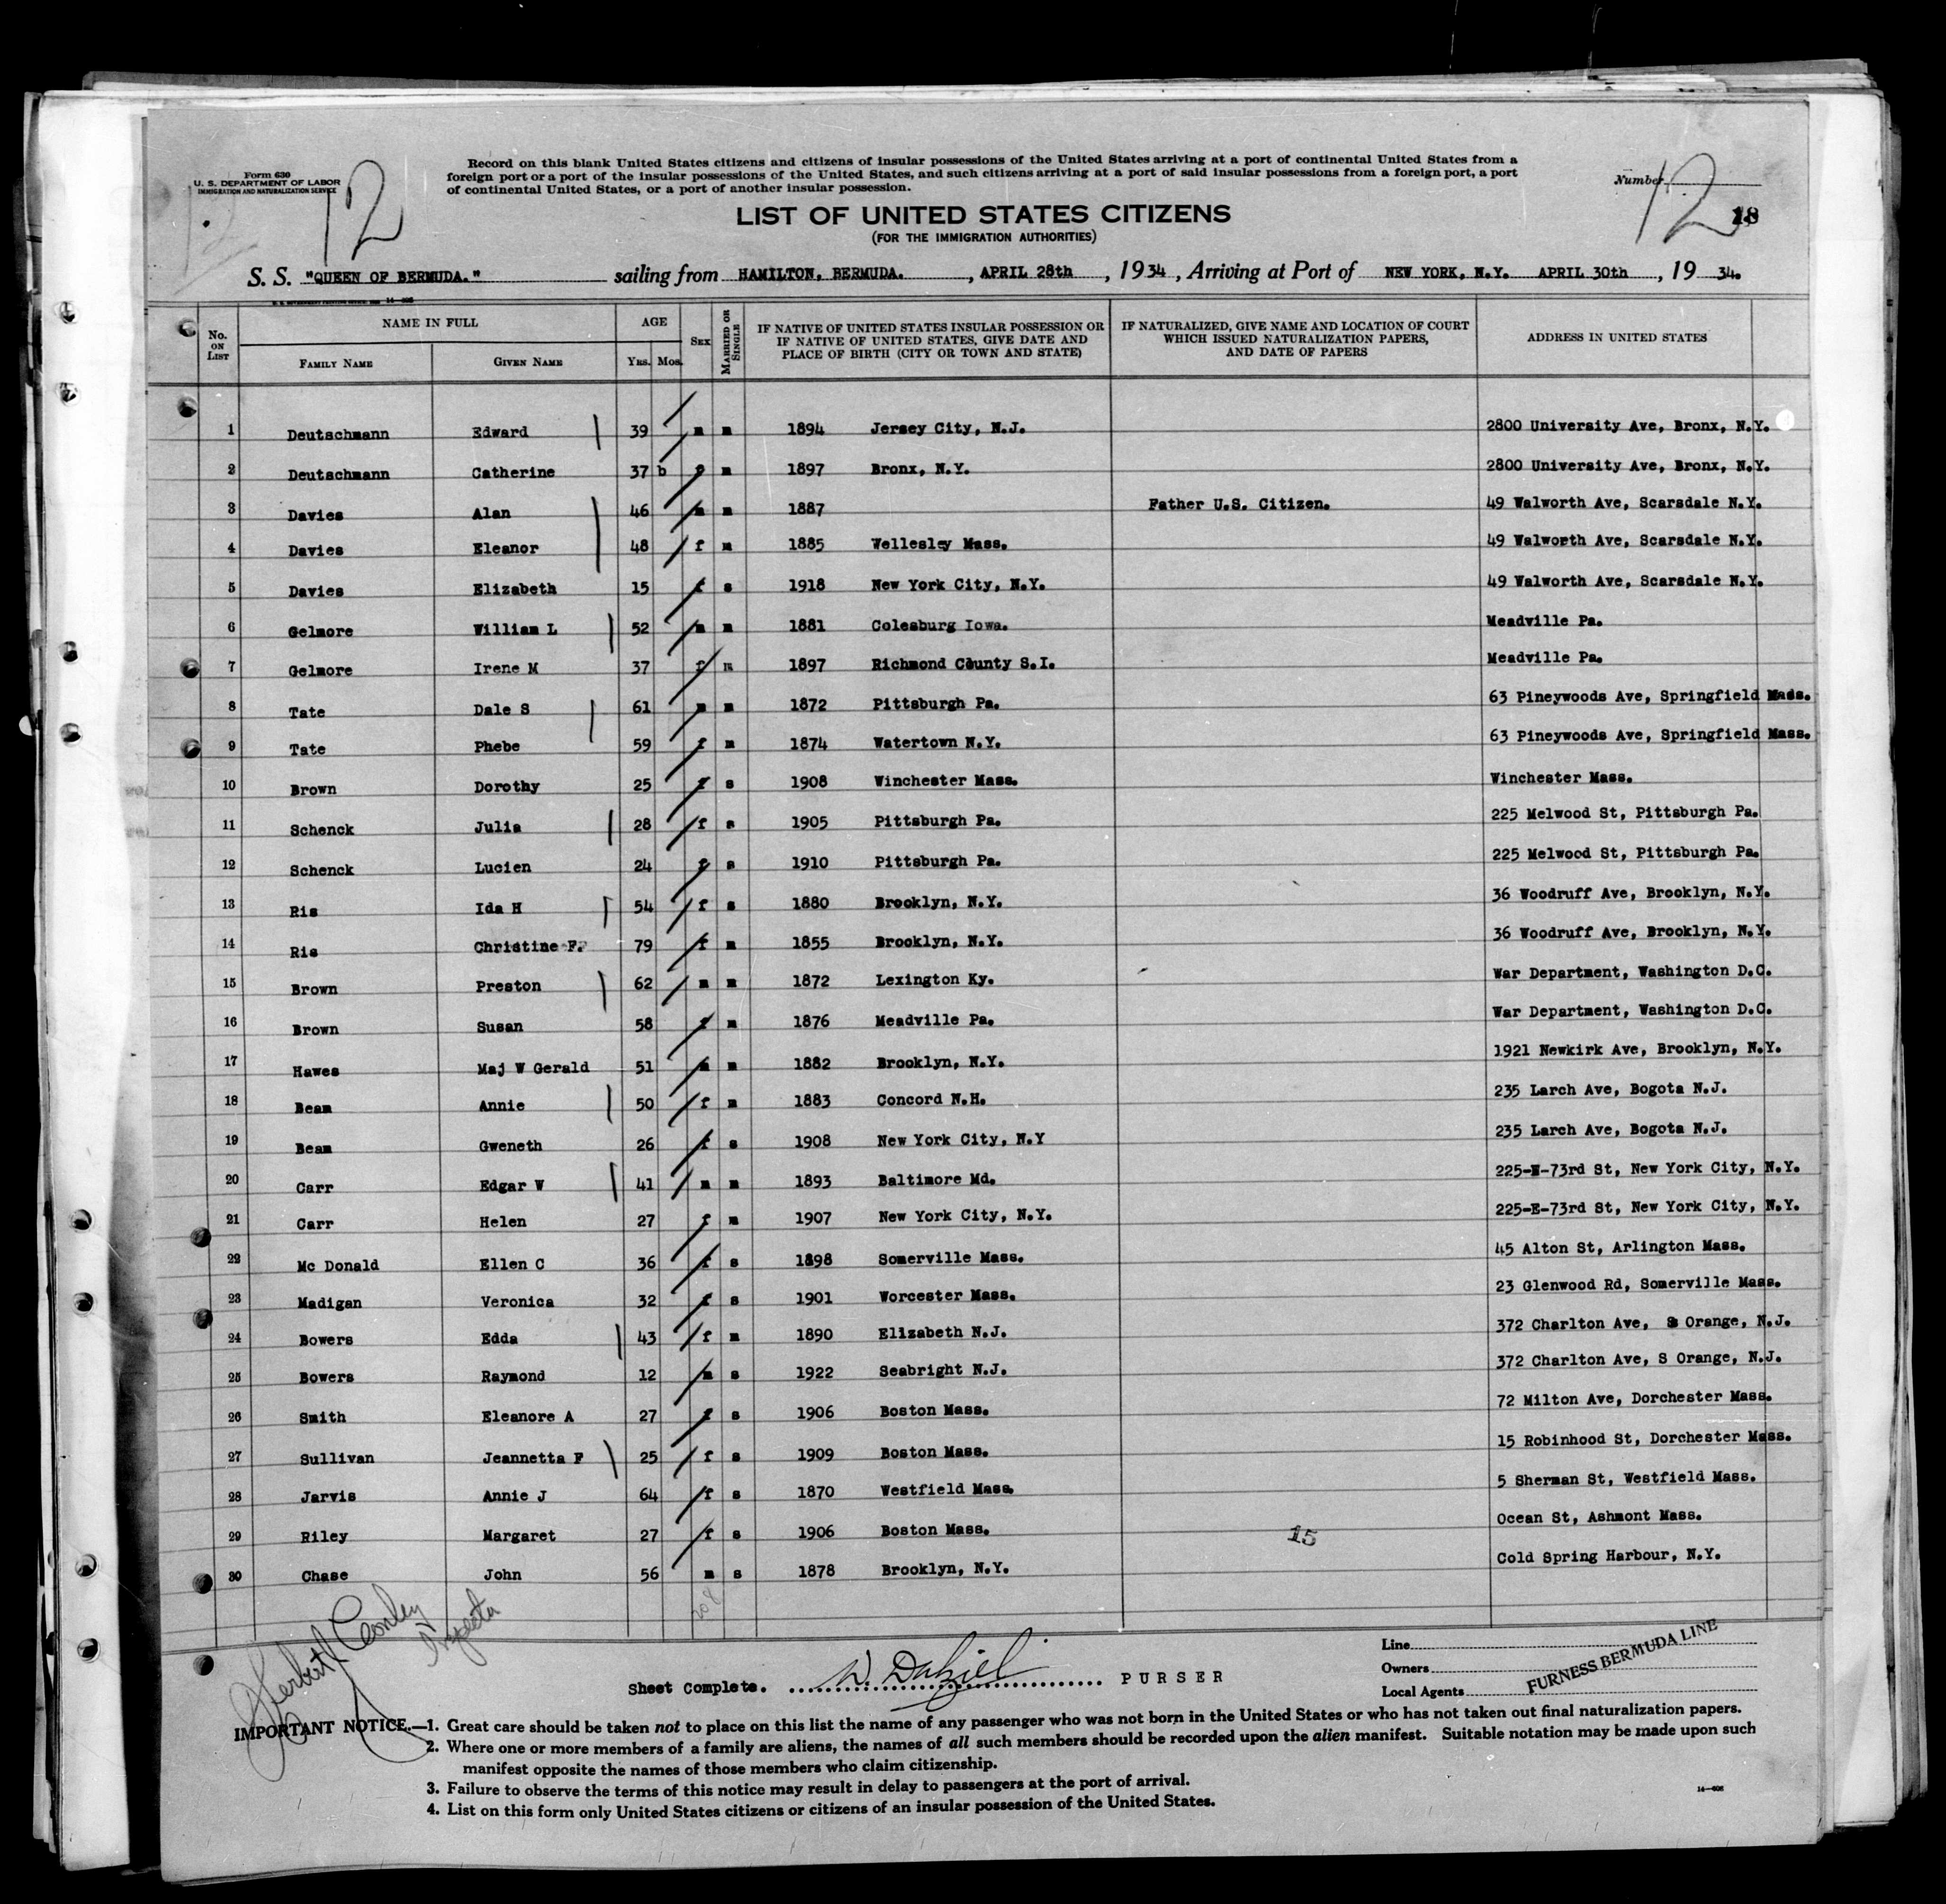 Form 630
U. S. DEPARTMENT OF LABOR
IMMIGRATION AND NATURALIZATION SERVICE
12
Record on this blank United States citizens and citizens of insular possessions of the United States arriving at a port of continental United States from a
foreign port or a port of the insular possessions of the United States, and such citizens arriving at a port of said insular possessions from a foreign port, a port
of continental United States, or a port of another insular possession.
Number
12
18
LIST OF UNITED STATES CITIZENS
(FOR THE IMMIGRATION AUTHORITIES)
S. S. "QUEEN OF BERMUDA." sailing from HAMILTON, BERMUDA. , APRIL 28th , 1934 , Arriving at Port of NEW YORK, N.Y. APRIL 30th , 19 34.
No. ON LIST NAME IN FULL AGE SEX MARRIED OR SINGLE IF NATIVE OF UNITED STATES INSULAR POSSESSION OR IF NATIVE OF UNITED STATES, GIVE DATE AND PLACE OF BIRTH (CITY OR TOWN AND STATE) IF NATURALIZED, GIVE NAME AND LOCATION OF COURT WHICH ISSUED NATURALIZATION PAPERS, AND DATE OF PAPERS ADDRESS IN UNITED STATES
FAMILY NAME GIVEN NAME YRS. MOS.
1 Deutschmann Edward 39 m m 1894 Jersey City, N.J. 2800 University Ave, Bronx, N.Y.
2 Deutschmann Catherine 37 b f m 1897 Bronx, N.Y. 2800 University Ave, Bronx, N.Y.
3 Davies Alan 46 m m 1887 Father U.S. Citizen. 49 Walworth Ave, Scarsdale N.Y.
4 Davies Eleanor 48 f m 1885 Wellesley Mass. 49 Walworth Ave, Scarsdale N.Y.
5 Davies Elizabeth 15 f s 1918 New York City, N.Y. 49 Walworth Ave, Scarsdale N.Y.
6 Gelmore William L 52 m m 1881 Colesburg Iowa. Meadville Pa.
7 Gelmore Irene M 37 f m 1897 Richmond County S.I. Meadville Pa.
8 Tate Dale S 61 m m 1872 Pittsburgh Pa. 63 Pineywoods Ave, Springfield Mass.
9 Tate Phebe 59 f m 1874 Watertown N.Y. 63 Pineywoods Ave, Springfield Mass.
10 Brown Dorothy 25 f s 1908 Winchester Mass. Winchester Mass.
11 Schenck Julia 28 f s 1905 Pittsburgh Pa. 225 Melwood St, Pittsburgh Pa.
12 Schenck Lucien 24 f s 1910 Pittsburgh Pa. 225 Melwood St, Pittsburgh Pa.
13 Ris Ida H 54 f s 1880 Brooklyn, N.Y. 36 Woodruff Ave, Brooklyn, N.Y.
14 Ris Christine F. 79 f m 1855 Brooklyn, N.Y. 36 Woodruff Ave, Brooklyn, N.Y.
15 Brown Preston 62 m m 1872 Lexington Ky. War Department, Washington D.C.
16 Brown Susan 58 f m 1876 Meadville Pa. War Department, Washington D.C.
17 Hawes Maj W Gerald 51 m m 1882 Brooklyn, N.Y. 1921 Newkirk Ave, Brooklyn, N.Y.
18 Beam Annie 50 f m 1883 Concord N.H. 235 Larch Ave, Bogota N.J.
19 Beam Gweneth 26 f s 1908 New York City, N.Y 235 Larch Ave, Bogota N.J.
20 Carr Edgar W 41 m m 1893 Baltimore Md. 225-E-73rd St, New York City, N.Y.
21 Carr Helen 27 f m 1907 New York City, N.Y. 225-E-73rd St, New York City, N.Y.
22 Mc Donald Ellen C 36 f s 1898 Somerville Mass. 45 Alton St, Arlington Mass.
23 Madigan Veronica 32 f s 1901 Worcester Mass. 23 Glenwood Rd, Somerville Mass.
24 Bowers Edda 43 f m 1890 Elizabeth N.J. 372 Charlton Ave, S Orange, N.J.
25 Bowers Raymond 12 m s 1922 Seabright N.J. 372 Charlton Ave, S Orange, N.J.
26 Smith Eleanore A 27 f s 1906 Boston Mass. 72 Milton Ave, Dorchester Mass.
27 Sullivan Jeannetta F 25 f s 1909 Boston Mass. 15 Robinhood St, Dorchester Mass.
28 Jarvis Annie J 64 f s 1870 Westfield Mass. 5 Sherman St, Westfield Mass.
29 Riley Margaret 27 f s 1906 Boston Mass. 15 Ocean St, Ashmont Mass.
30 Chase John 56 m s 1878 Brooklyn, N.Y. Cold Spring Harbour, N.Y.
Herbert Conley
Inspector
Sheet Complete. W. Dalziel PURSER
Line
Owners
Local Agents
FURNESS BERMUDA LINE
IMPORTANT NOTICE.—1. Great care should be taken not to place on this list the name of any passenger who was not born in the United States or who has not taken out final naturalization papers.
2. Where one or more members of a family are aliens, the names of all such members should be recorded upon the alien manifest. Suitable notation may be made upon such
manifest opposite the names of those members who claim citizenship.
3. Failure to observe the terms of this notice may result in delay to passengers at the port of arrival.
4. List on this form only United States citizens or citizens of an insular possession of the United States.